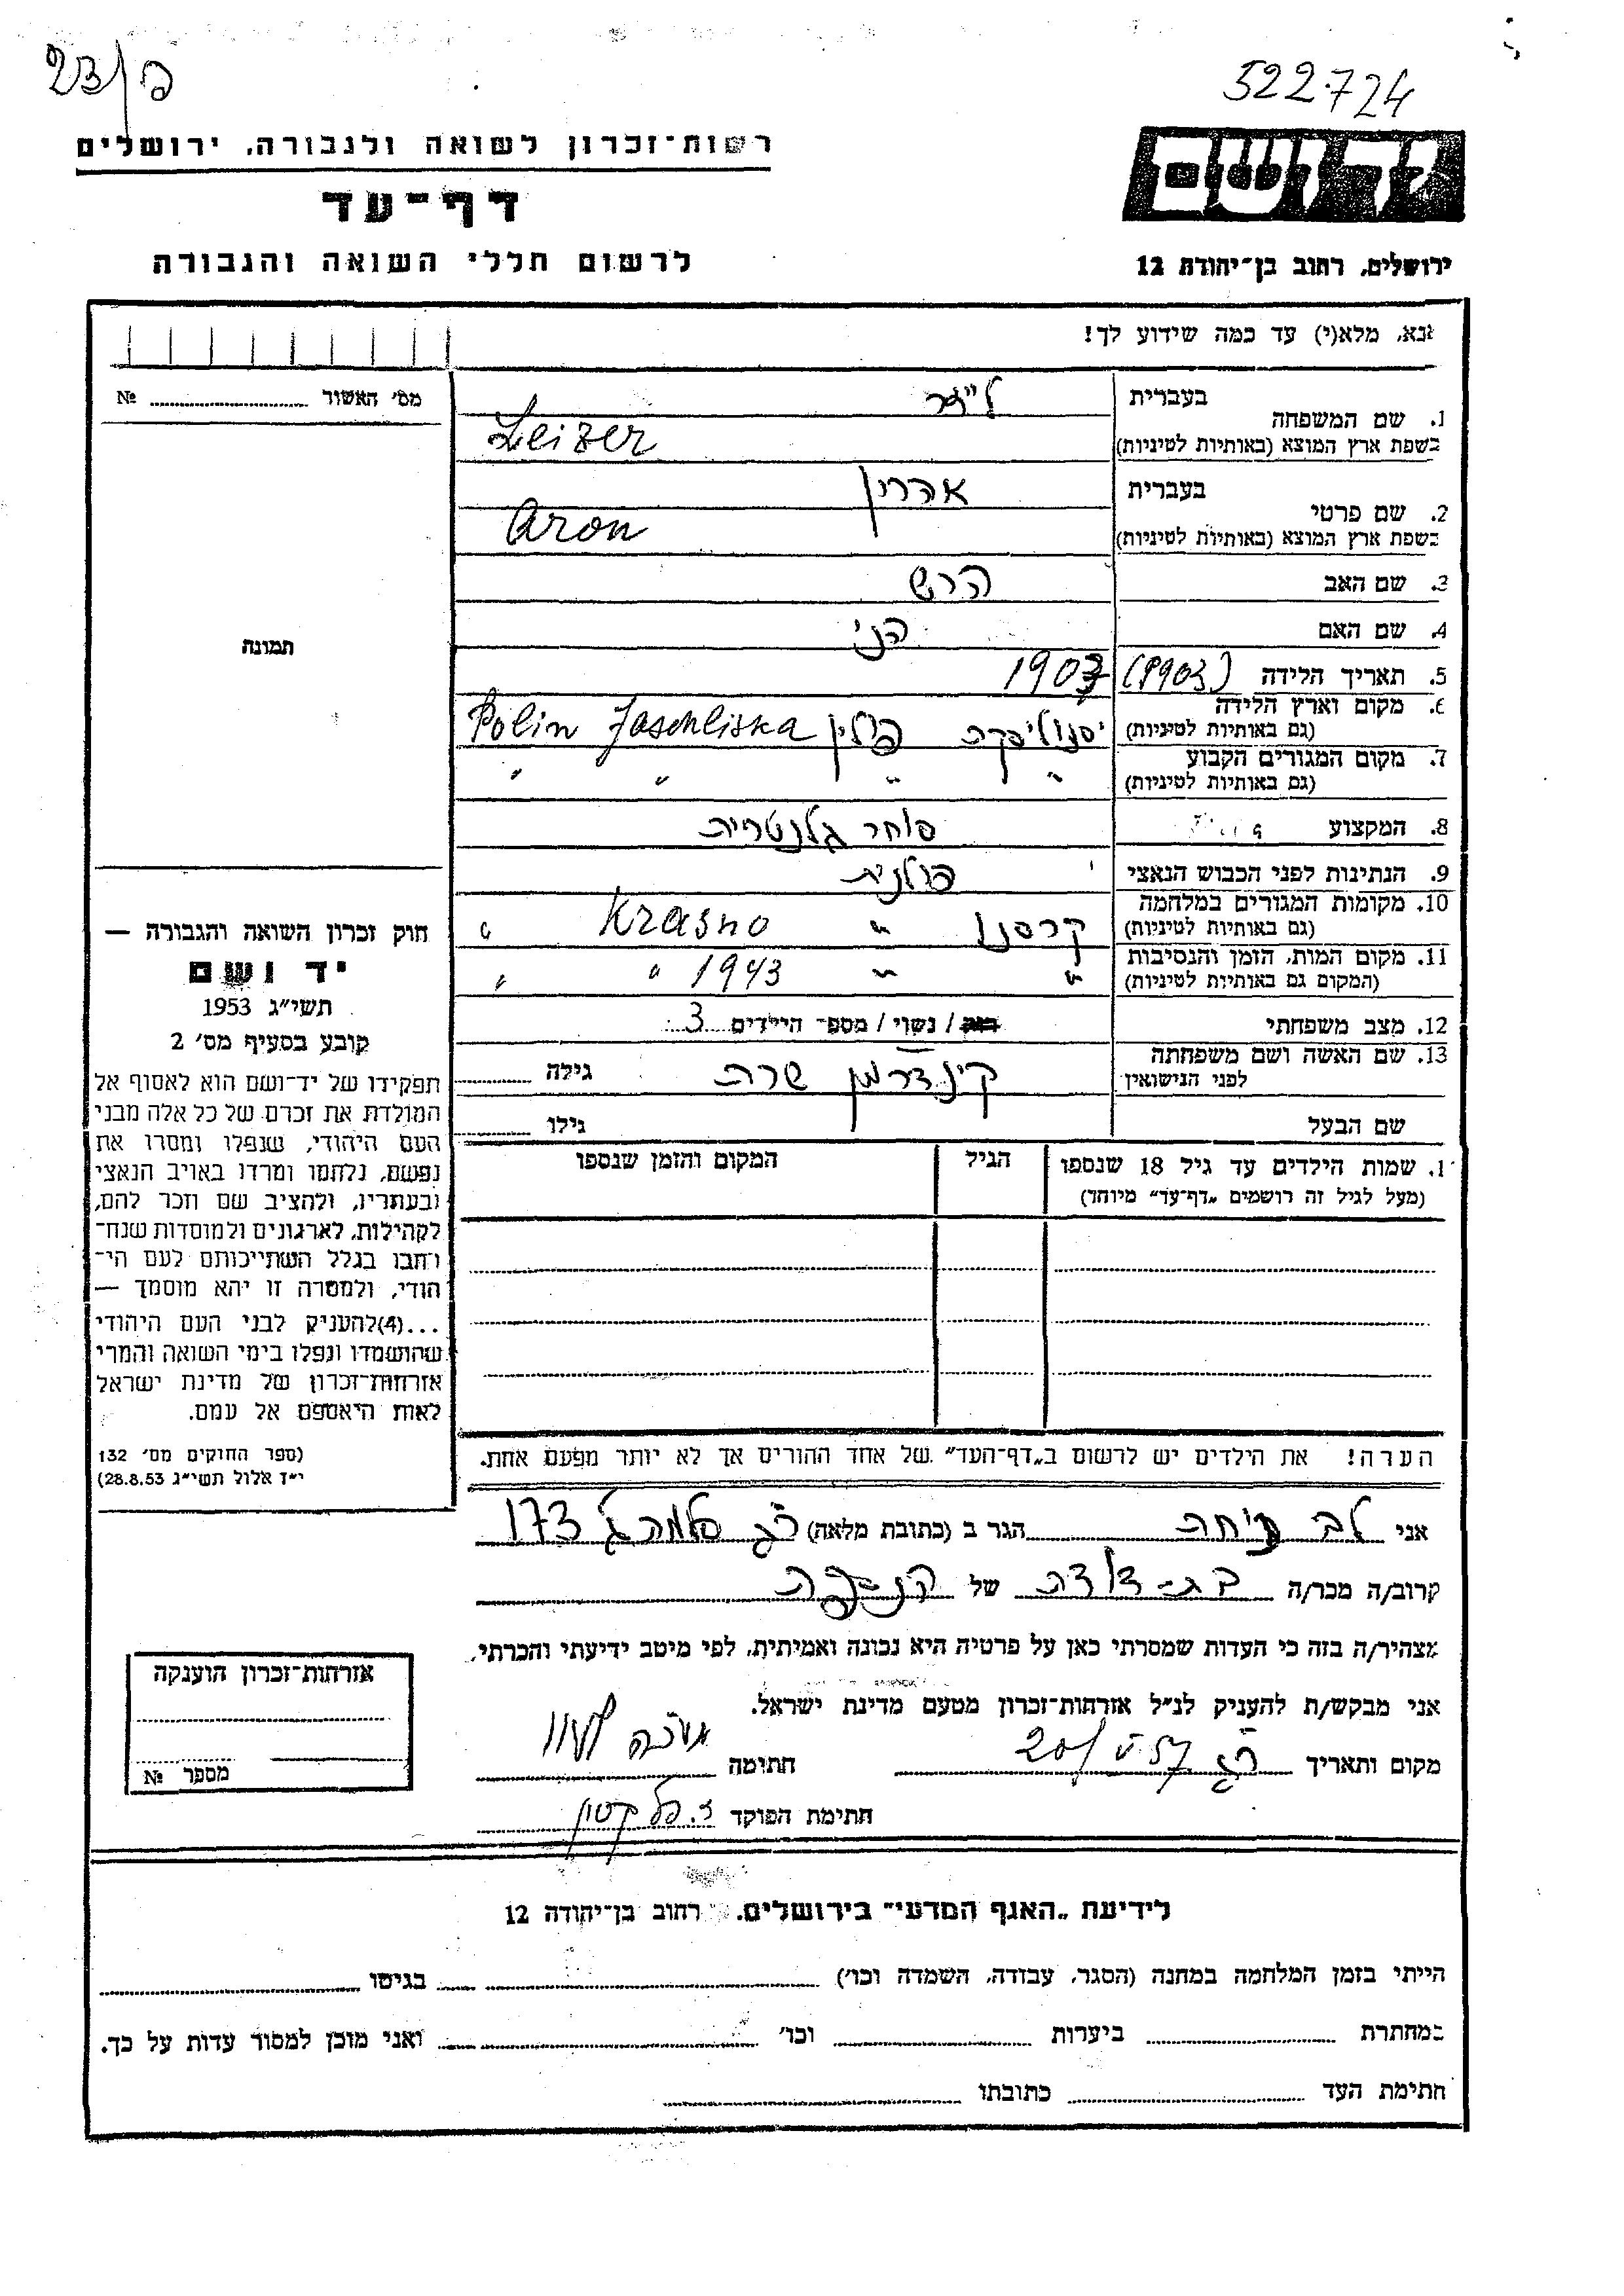 23/פ
522.724
רשות־זכרון לשואה ולגבורה, ירושלים
דף־עד
לרשום חללי השואה והגבורה
יד ושם
ירושלים, רחוב בן־יהודה 12
נא, מלא(י) עד כמה שידוע לך!
מס' האשור № 
1. שם המשפחה בעברית לייזר
בשפת ארץ המוצא (באותיות לטיניות) Leizer
2. שם פרטי בעברית אהרון
בשפת ארץ המוצא (באותיות לטיניות) Aron
3. שם האב הרש
4. שם האם הני
5. תאריך הלידה (1903) 1903
6. מקום וארץ הלידה
(גם באותיות לטיניות) פולין Polin Jaschliska
7. מקום המגורים הקבוע
(גם באותיות לטיניות) " " " "
8. המקצוע סוחר גלנטריה
9. הנתינות לפני הכבוש הנאצי פולנית
10. מקומות המגורים במלחמה
(גם באותיות לטיניות) קרסנו " Krasno "
11. מקום המות, הזמן והנסיבות
(המקום גם באותיות לטיניות) " " 1943 " "
12. מצב משפחתי רווק / נשוי / מספר הילדים 3
13. שם האשה ושם משפחתה
לפני הנישואין קינדרמן שרה גילה
שם הבעל גילו
1. שמות הילדים עד גיל 18 שנספו
(מעל לגיל זה רושמים „דף־עד" מיוחד)
הגיל
המקום והזמן שנספו
הערה! את הילדים יש לרשום ב„דף־העד" של אחד ההורים אך לא יותר מפעם אחת.
תמונה
חוק זכרון השואה והגבורה —
יד ושם
תשי"ג 1953
קובע בסעיף מס' 2
תפקידו של יד־ושם הוא לאסוף אל
המולדת את זכרם של כל אלה מבני
העם היהודי, שנפלו ומסרו את
נפשם, נלחמו ומרדו באויב הנאצי
ובעוזריו, ולהציב שם וזכר להם,
לקהילות, לארגונים ולמוסדות שנח־
רבו בגלל השתייכותם לעם הי־
הודי, ולמטרה זו יהא מוסמך —
...(4)להעניק לבני העם היהודי
שהושמדו ונפלו בימי השואה והמרי
אזרחות־זכרון של מדינת ישראל
לאות היאספם אל עמם.
(ספר החוקים מס' 132
י"ז אלול תשי"ג 28.8.53)
אני לב הגר ב (כתובת מלאה) רג 173
קרוב/ה מכר/ה בת־דודה של הנספה
מצהיר/ה בזה כי העדות שמסרתי כאן על פרטיה היא נכונה ואמיתית, לפי מיטב ידיעתי והכרתי.
אני מבקש/ת להעניק לנ"ל אזרחות־זכרון מטעם מדינת ישראל.
מקום ותאריך רג 20/V 57 חתימה
חתימת הפוקד
אזרחות־זכרון הוענקה
מספר №
לידיעת „האגף המדעי" בירושלים, רחוב בן־יהודה 12
הייתי בזמן המלחמה במחנה (הסגר, עבודה, השמדה וכו') בגיטו
במחתרת ביערות וכו' ואני מוכן למסור עדות על כך.
חתימת העד כתובתו